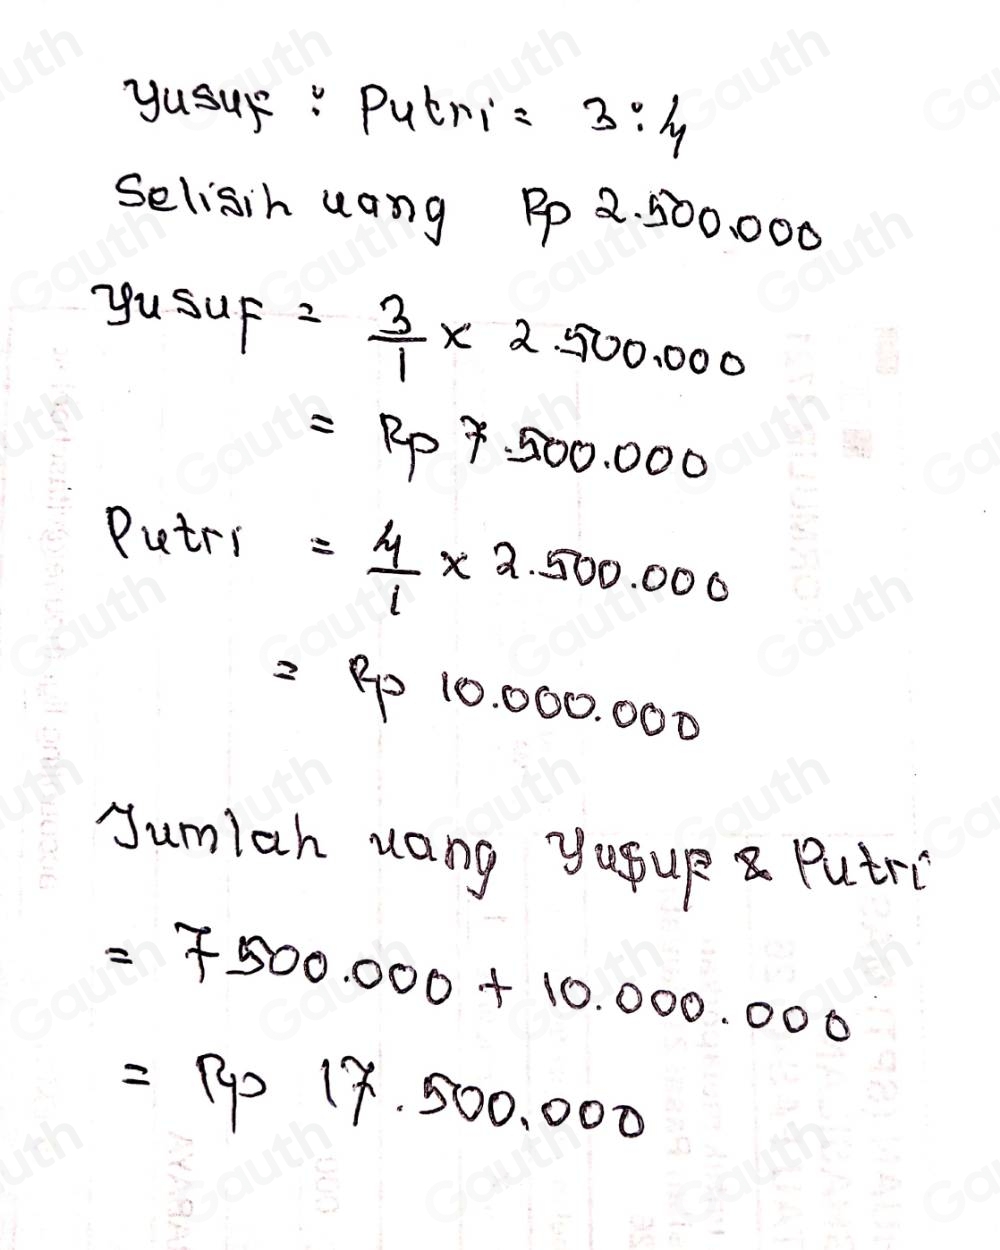 Yusuf : Putri = 3 : 4
Selisih uang Rp 2.500.000
Yusuf = 3/1 x 2.500.000
= Rp 7.500.000
Putri = 4/1 x 2.500.000
= Rp 10.000.000
Jumlah uang Yusuf & Putri
= 7500.000 + 10.000.000
= Rp 17.500.000